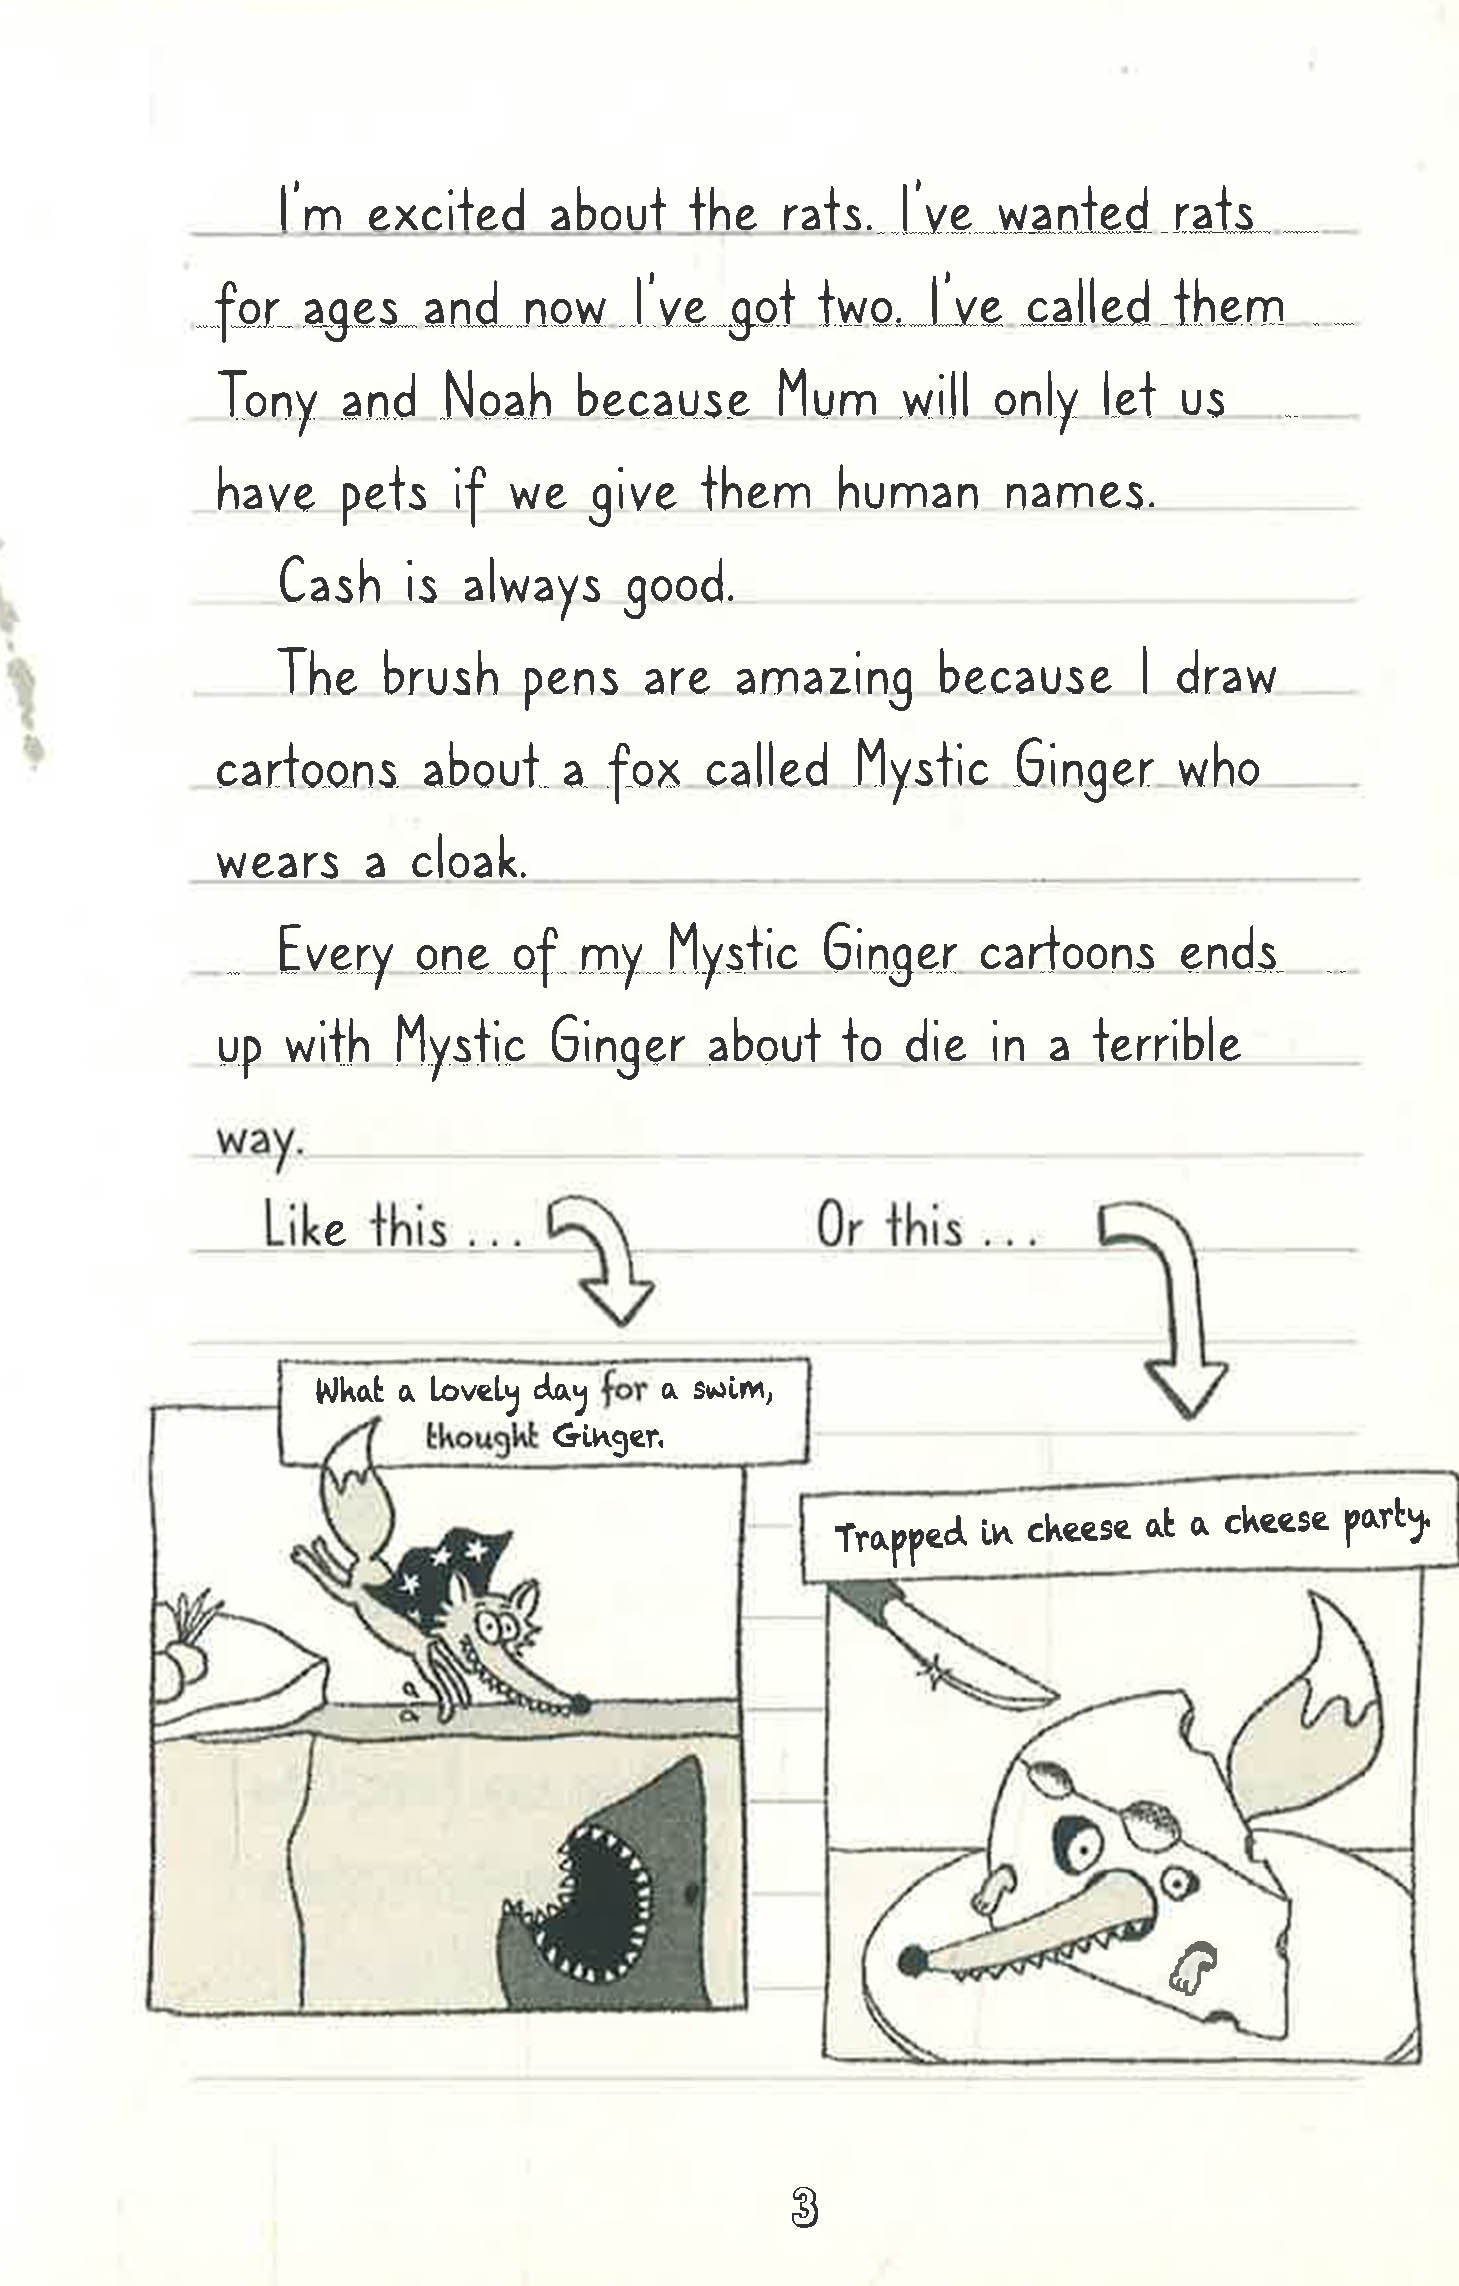 I'm excited about the rats. I've wanted rats
for ages and now I've got two. I've called them
Tony and Noah because Mum will only let us
have pets if we give them human names.
Cash is always good.
The brush pens are amazing because I draw
cartoons about a fox called Mystic Ginger who
wears a cloak.
Every one of my Mystic Ginger cartoons ends
up with Mystic Ginger about to die in a terrible
way.
Like this ...
Or this ...
What a lovely day for a swim,
thought Ginger.
Trapped in cheese at a cheese party.
3